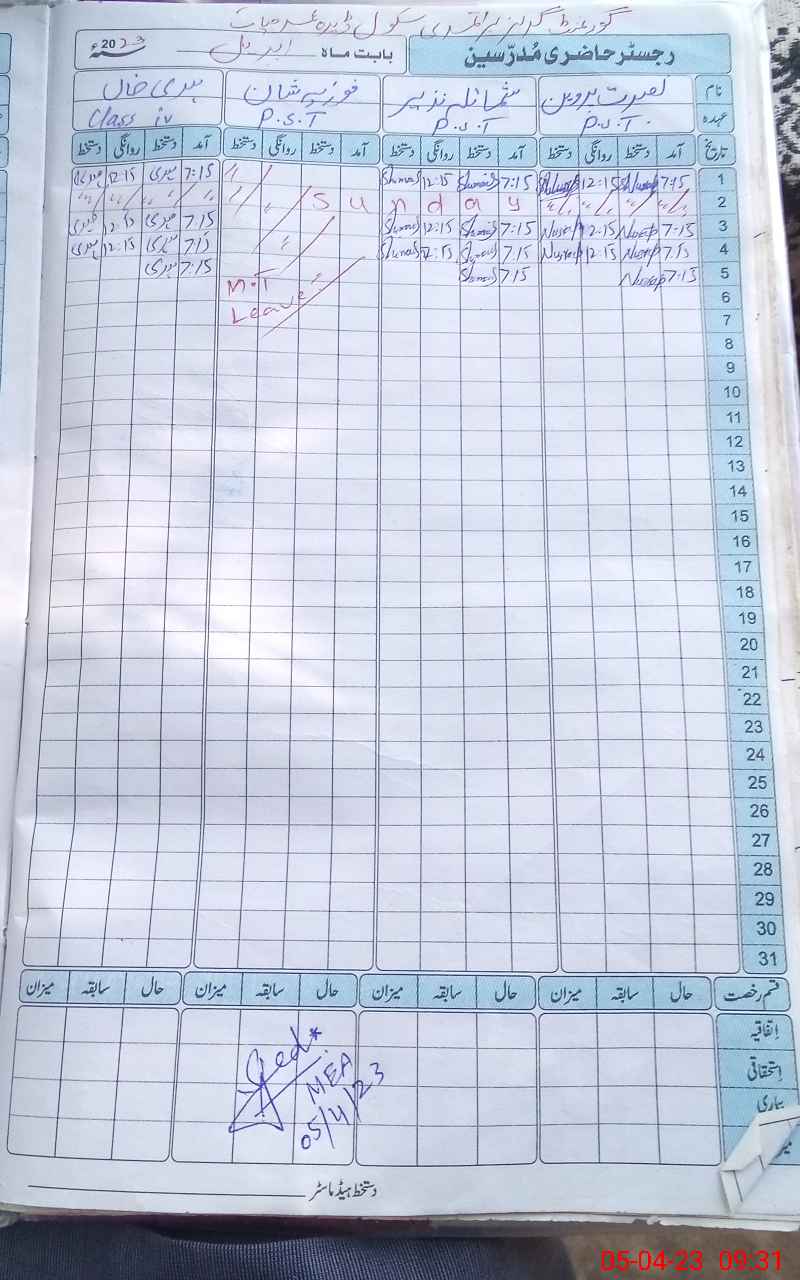 گورنمنٹ گرلز پرائمری سکول ڈیرہ
رجسٹر حاضری مُدرّسین
بابت ماہ اپریل
2023ء
نام نصرت پروین شمائلہ نذیر فوزیہ شان مہدی خان
عہدہ P.S.T. P.S.T P.S.T Class iv
تاریخ آمد دستخط روانگی دستخط آمد دستخط روانگی دستخط آمد دستخط روانگی دستخط آمد دستخط روانگی دستخط
1 7:15 Nusrat 12:15 Nusrat 7:15 Shumaila 12:15 Shumaila " 7:15 مہدی 12:15 مہدی
2 " " " " Sunday " " " " " "
3 7:15 Nusrat 12:15 Nusrat 7:15 Shumaila 12:15 Shumaila 7:15 مہدی 12:15 مہدی
4 7:15 Nusrat 12:15 Nusrat 7:15 Shumaila 12:15 Shumaila " 7:15 مہدی 12:15 مہدی
5 7:15 Nusrat 7:15 Shumaila M.T 7:15 مہدی
6 Leave
7
8
9
10
11
12
13
14
15
16
17
18
19
20
21
22
23
24
25
26
27
28
29
30
31
قسم رخصت حال سابقہ میزان حال سابقہ میزان حال سابقہ میزان حال سابقہ میزان
اتفاقیہ
استحقاقی
بیماری
MEA
05/4/23
دستخط ہیڈ ماسٹر
05-04-23 09:31